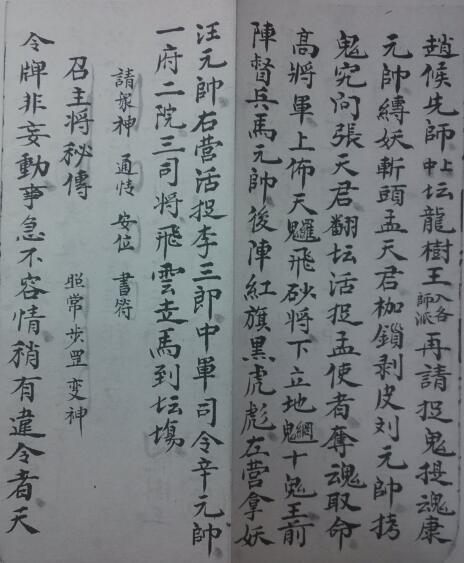 趙候先師中上坛龍樹王入各師派再請捉鬼提魂康
元帥縛妖斬頭孟天君枷鎖剥皮刘元帥拷
鬼究问張天君翻坛活捉孟使者奪魂取命
高將軍上佈天羅飛砂將下立地網十鬼王前
陣督兵馬元帥後陣紅旗黑虎彪左营拿妖
汪元帥右营活捉李三郎中軍司令辛元帥
一府二院三司將飛雲走馬到坛塲
請衆神 通情 安位 書符
召主將秘傳 照常步罡变神
令牌非妄動事急不容情稍有違令者天